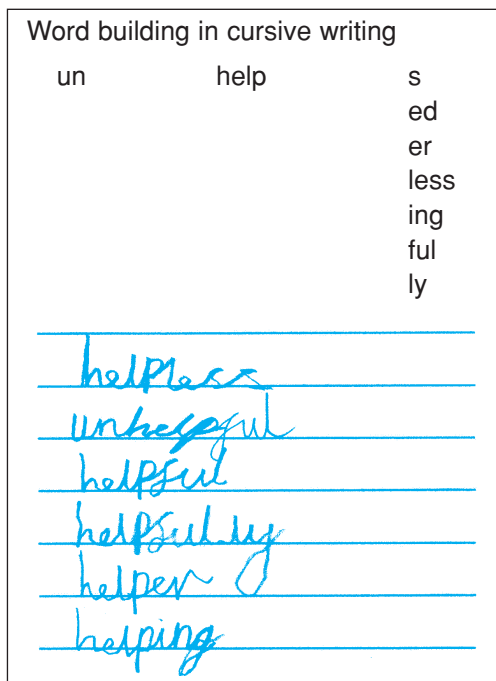 Word building in cursive writing
un help s
ed
er
less
ing
ful
ly
helpless
unhelpful
helpful
helpfully
helper
helping